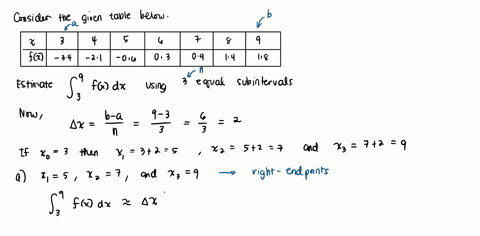 Consider the given table below.
a b
x 3 4 5 6 7 8 9
f(x) -3.4 -2.1 -0.6 0.3 0.9 1.4 1.8
n
Estimate ∫₃⁹ f(x) dx using 3 equal subintervals
Now,
Δx = b-a/n = 9-3/3 = 6/3 = 2
If x₀ = 3 then x₁ = 3+2 = 5 , x₂ = 5+2 = 7 and x₃ = 7+2 = 9
a) x₁ = 5 , x₂ = 7 , and x₃ = 9 → right-endpoints
∫₃⁹ f(x) dx ≈ Δx